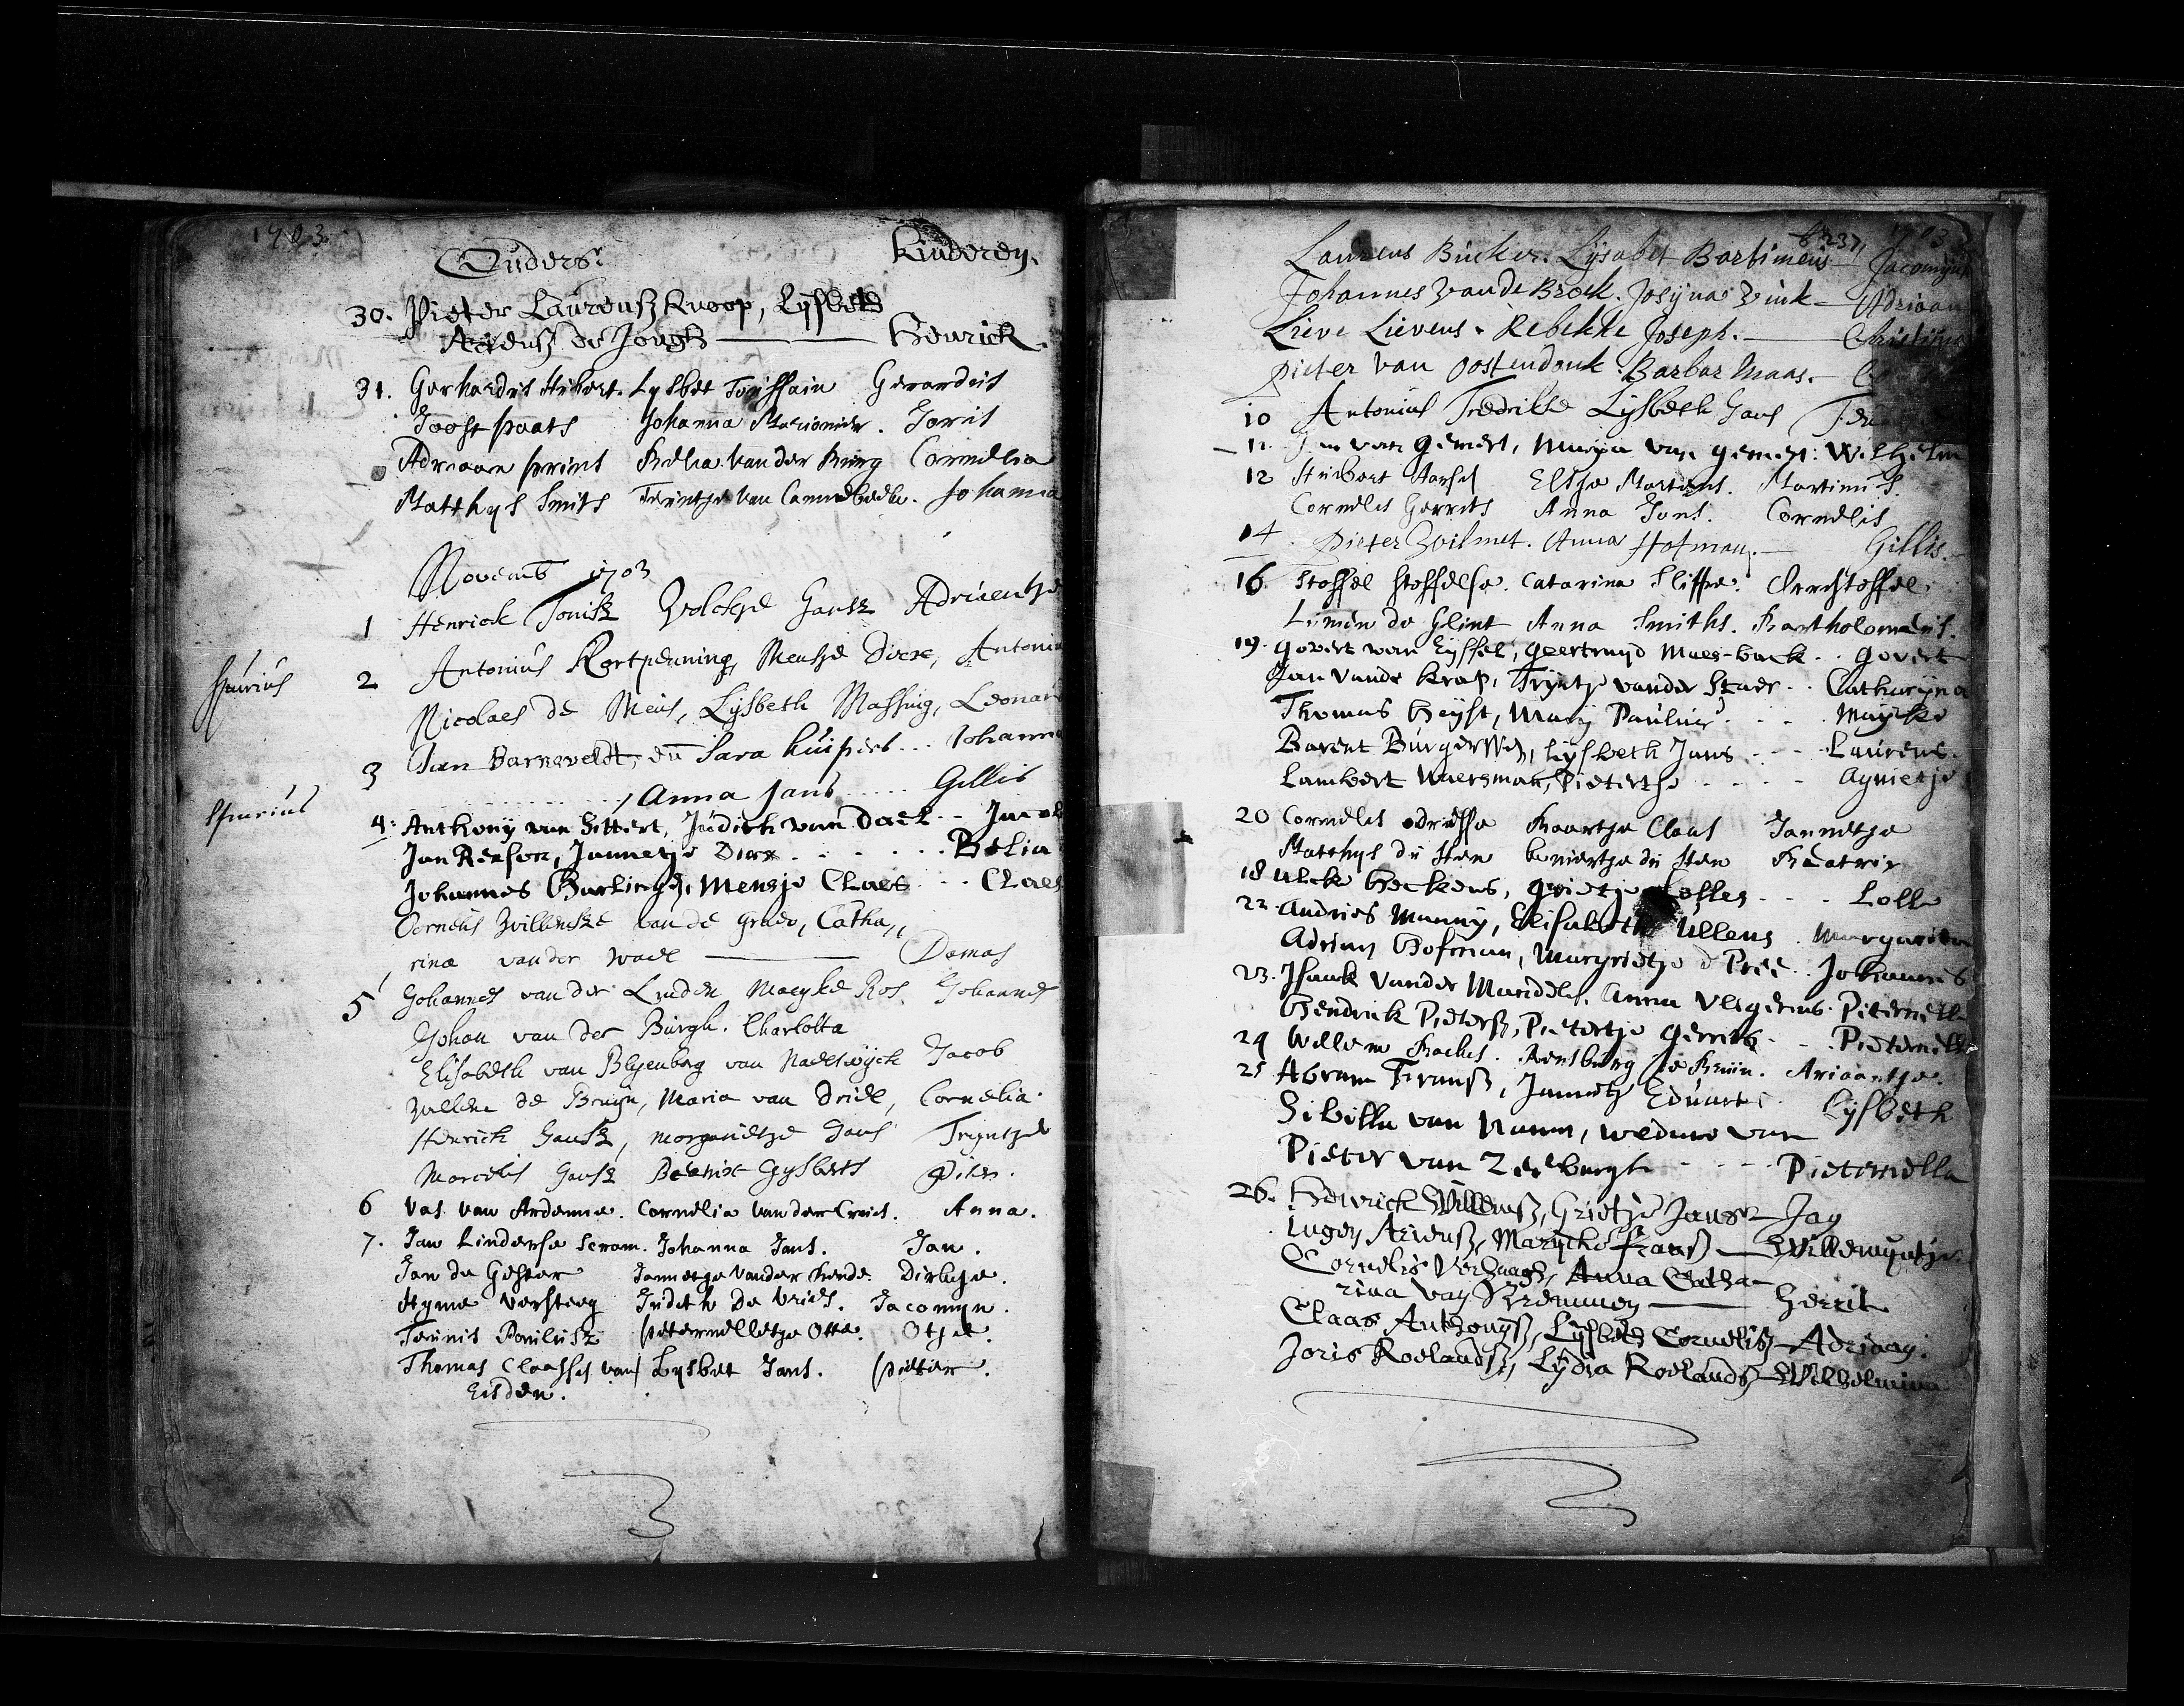 1703
Ouders. Kinderen.
30. Pieter Laurensz Knoop, Lysbeth
Ariens de Jongh Henrick.
31. Gerhardus Hubert. Lysbet Toussain Gerardus
Joost Paats Johanna Joris
Adriaan Prins van der Burg Cornelia
Matthys Smits Teuntje van Johanna
Novemb 1703
1 Henrick Tonisz Volckje Jansz Adriaentje
2 Antonius Kortpenning, Mensje Dircx, Antoni
Nicolaes de Meus, Lysbeth Massing, Leonar
3 Jan Barneveldt, en Sara Kuipers... Johann
Anna Jans ..... Gillis
4: Anthony van Sittert, Judith van Dael - - Jacob
Jan Reeson, Jannetje Dirx . . . . . . Belia
Johannes Gurlings, Mensje Claes . . . Claes
Cornelis Willemsze van de Graev, Catha,,
rina van der Wael Damas
5 Johannes van der Linden Maeyke Ros. Johannes
Johan van der Burgh. Charlotta
Elisabeth van Blyenborg van Naeltwyck Jacob
Willem de Bruyn, Maria van Driel, Cornelia.
Henrick Jansz, Margrietje Jans Tryntje
Marcelis Jansz Beatrix Gysberts Piter.
6 Vas van Ardenne. Cornelia van der Cruis. Anna.
7. Jan Linderse Scram. Johanna Jans. Jan.
Jan de Gester Jannetje vander Dirkije.
Hyme Versteeg Judith De Vries. Jacomyn.
Teunis Paulusz Peternelletje Otte. Otjee.
Thomas Claasses van Lysbet Jans. Pieter.
Eisden.
237, 1703
Laurens Bucker. Lysabet Bartimeus Jacomyn
Johannes vande Broek. Josyna Vink Adriaan
Lieve Lievens. Rebekke Joseph. Christina
Pieter van Oostendonk. Barbar Maas.
10 Antonius Fredrikse Lysbeth Jans
11. Jan van Gemert, Marya van Gemert: Wilhelm
12 Hubert Elsje Martens. Martinus.
Cornelis Gerrits Anna Jons. Cornelis
14. Pieter Wilmet. Anna Hofman. Gillis.
16. Stoffel Stoffelse. Catarina Slisse. Christoffel.
Simon de Glint Anna Smiths. Bartholomeus.
19. Govert van Eyssel, Geertruyd Maes-back . . Govert
Jan vande Krap, Tryntje vander Staer . . Catharyna
Thomas Heyst, Mary Paulus . . . Mayke
Barent Burgersse, Lysbeth Jans . . . Laurens.
Lambert Maersman, Pietertje . . . . Agnietje
20 Cornelis Maartje Claas Jannetje
Matthys du Sten du Sten Beatrix
18 Ulck Heckens, Grietje Lolles . . . Lolle
22. Andries Manny, Elisabeth Ullens . Margarita
Adrian Hofman, Margrietje d Pree . . Johannes
23. Isaack vander Mandele. Anna Vlegerius. Pieternell
Hendrick Pietersz, Pietertje Gerrits . . Pieternell
24 Willem Rensburg de Bruin. Ariaantje.
25 Abram Fransz, Jannetj Eduarts Lysbeth
Sibilla van Namen, weduwe van
Pieter van Zeeburgh . . . . Pieternella
26. Henrick Willemsz, Grietje Jans Jan
Inger Ariensz, Marycke Frans Willemyntje.
Cornelis Verhaagh, Anna Catha-
rina van Bremmen Gerrit
Claas Anthonysz, Lysbeth Cornelisz Adriaan.
Joris Roelandsz, Lydia Roelands Wilhelmina